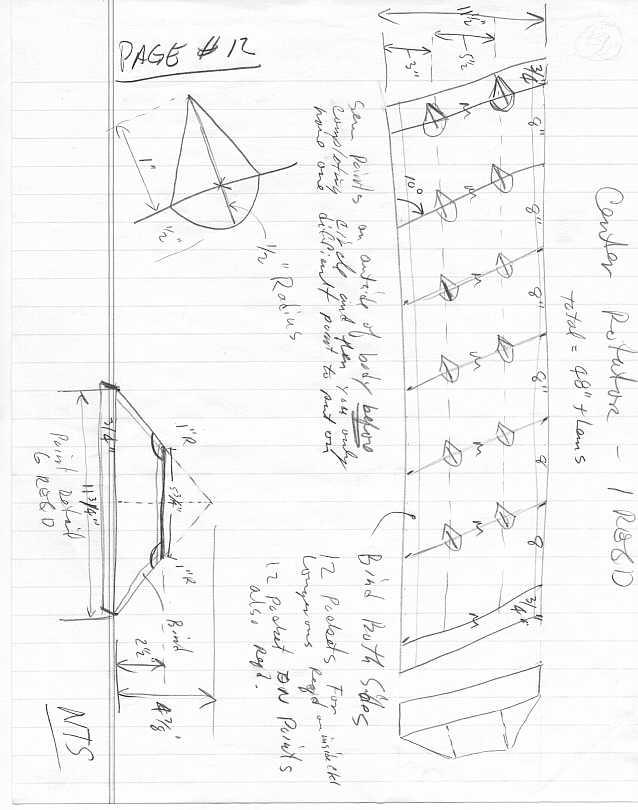 PAGE # 12
Center Rotator - 1 REQD
Total = 48" + Lams
11 1/2"
5 1/2
3"
3/4
8"
8"
8"
8"
8
8
3/4"
10°
M
M
M
M
M
M
M
Sew Points on outside of body before
completing circle and then you only
have one difficult point to put on
1"
1/2"
1/2" Radius
Bind Both Sides
12 Pockets for
Longerons Reqd on inside
12 Pocket ON Points
also Reqd.
3/4"
1"R
5 3/4"
1"R
11 3/4"
Point Detail
6 REQD
Bind
2 1/2
4 7/8"
NTS